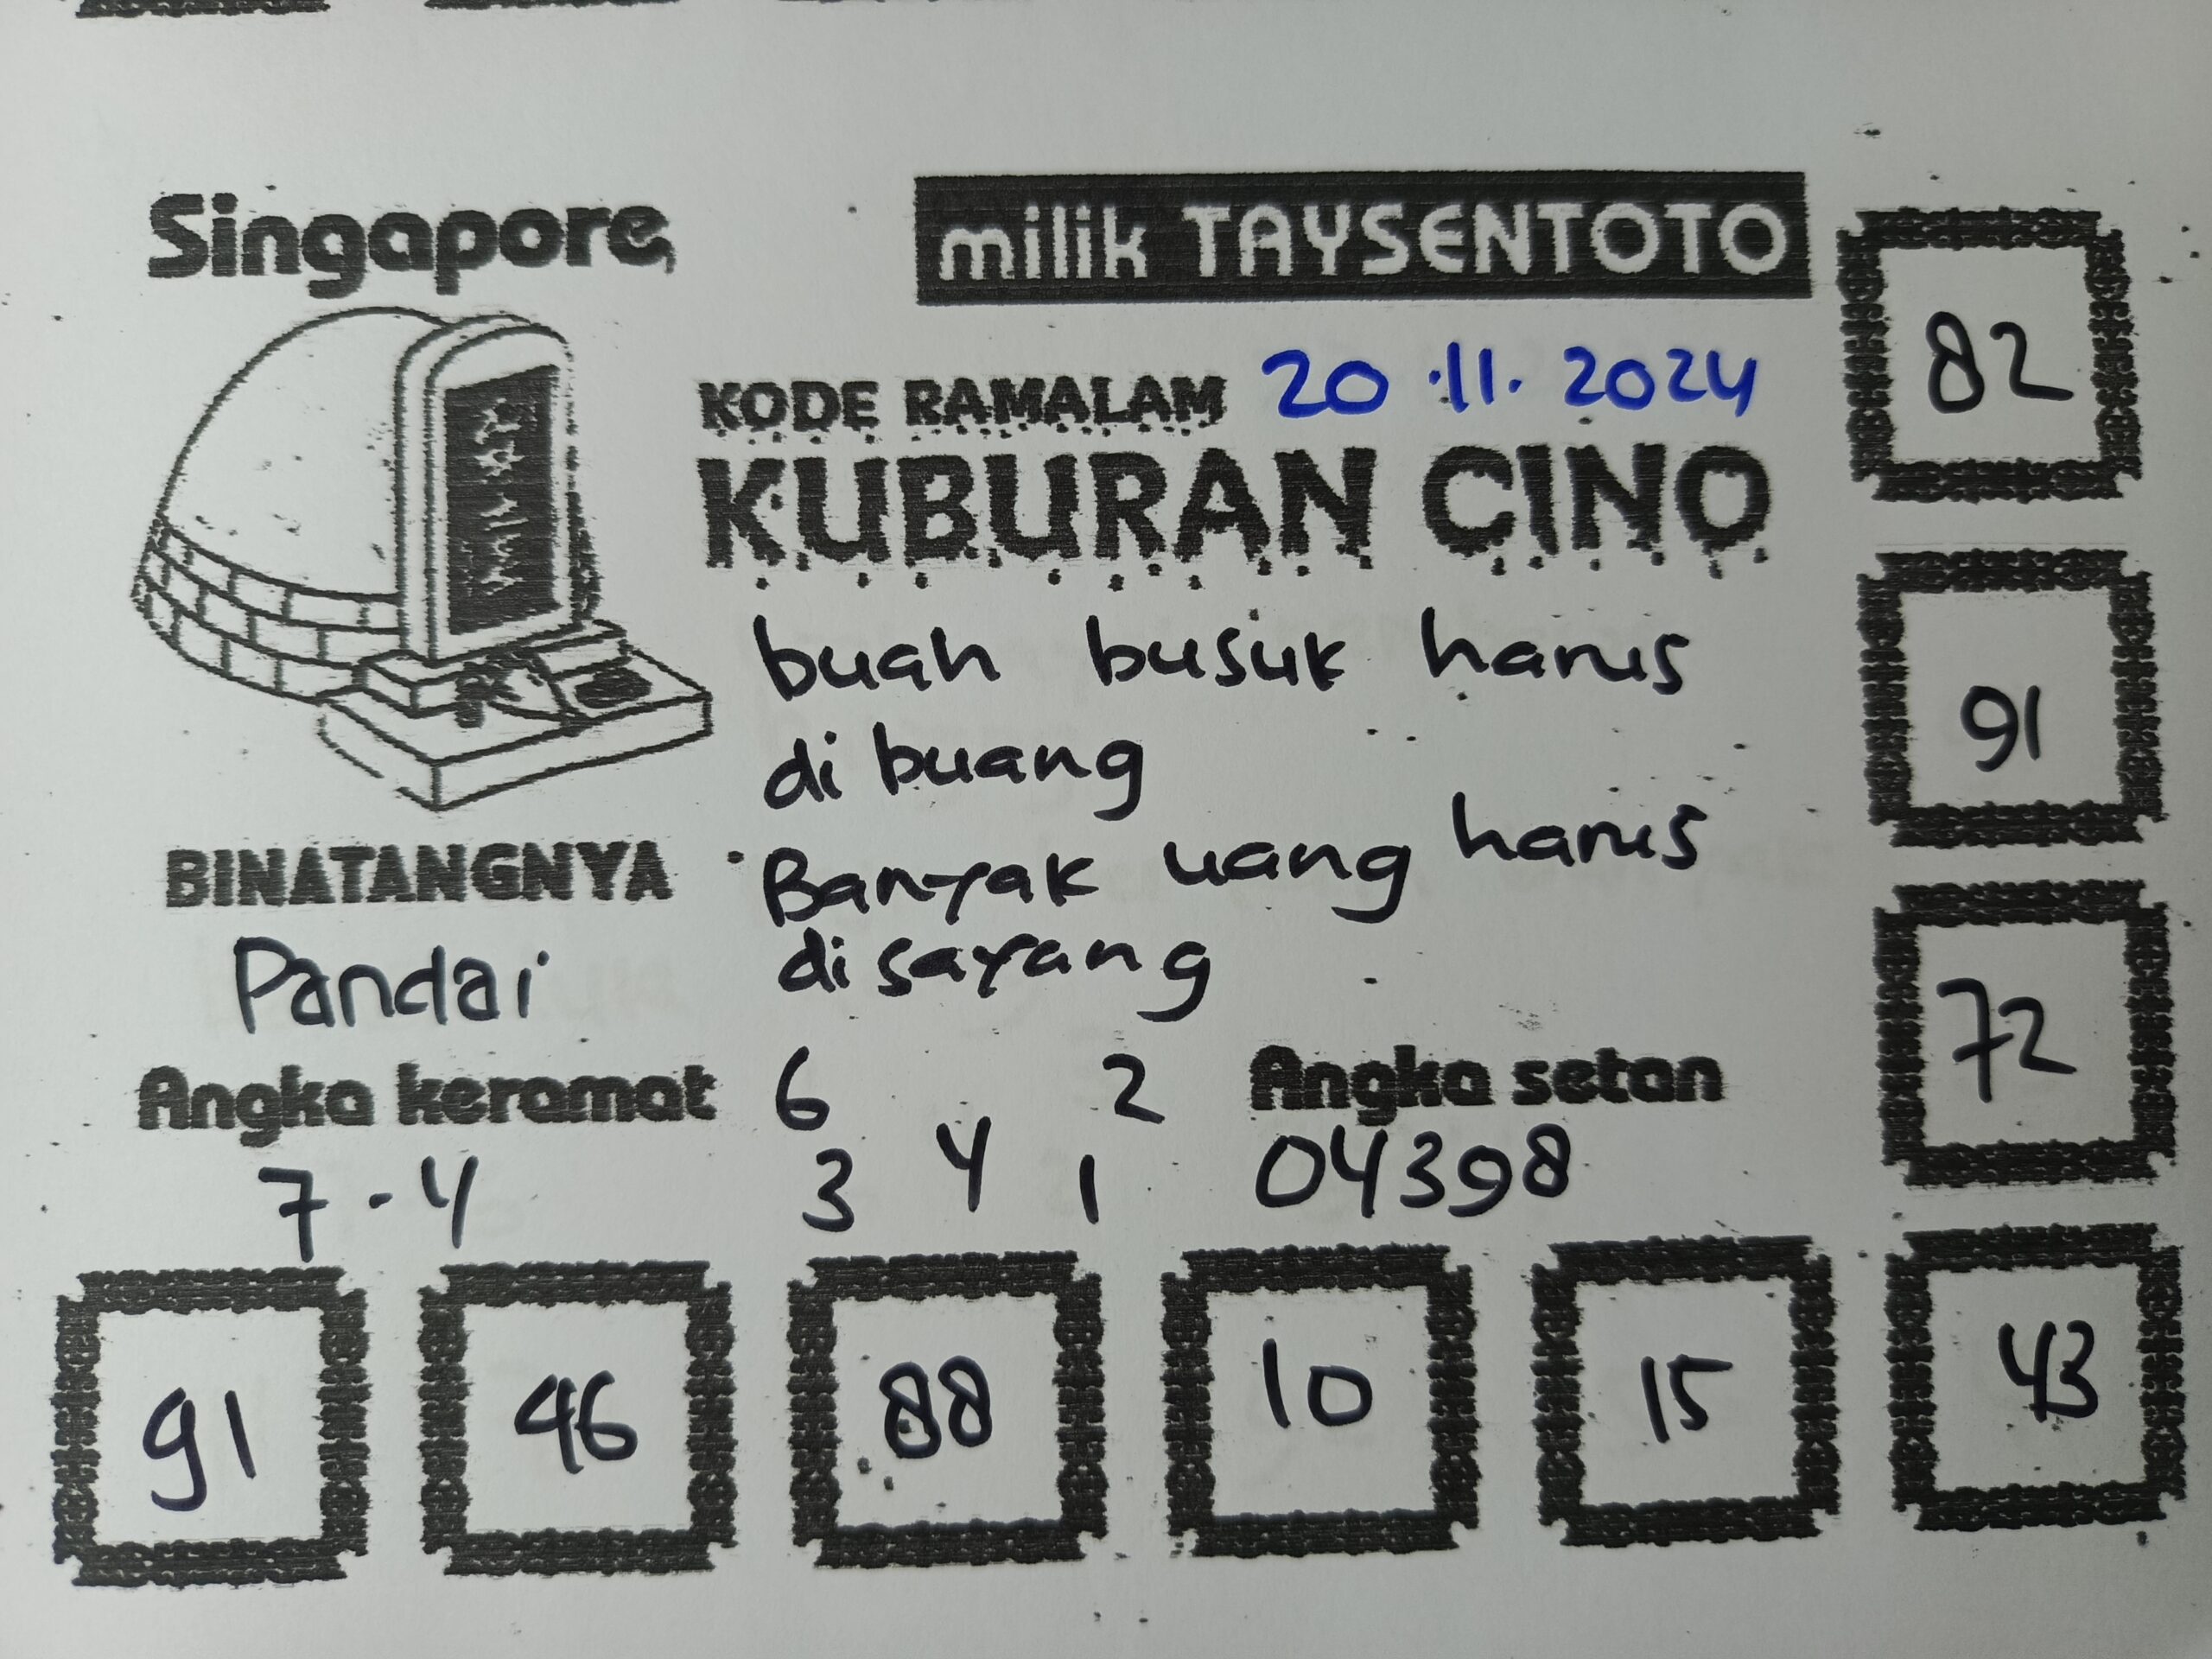 Singapore,
milik TAYSENTOTO
KODE RAMALAM 20.11.2024
KUBURAN CINO
buah busuk harus
di buang
Banyak uang harus
disayang
BINATANGNYA
Pandai
Angka keramat
7-4
6 2
3 4 1
Angka setan
04398
82
91
72
91 46 88 10 15 43